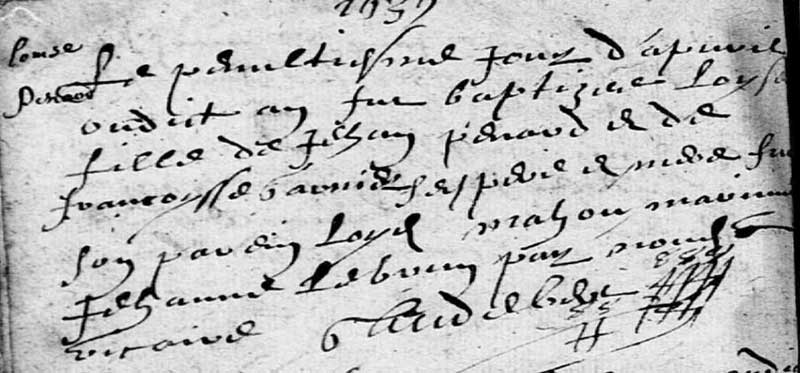 Louise
Penard
Le penultiesme jour d'apvril
oudict an fut baptizee Loyse
fille de Jehan penard et de
francoysse garnier ses pere et mere fut
son parein Loys mahou marinne
Jehanne Lebrun par nous
vicaire